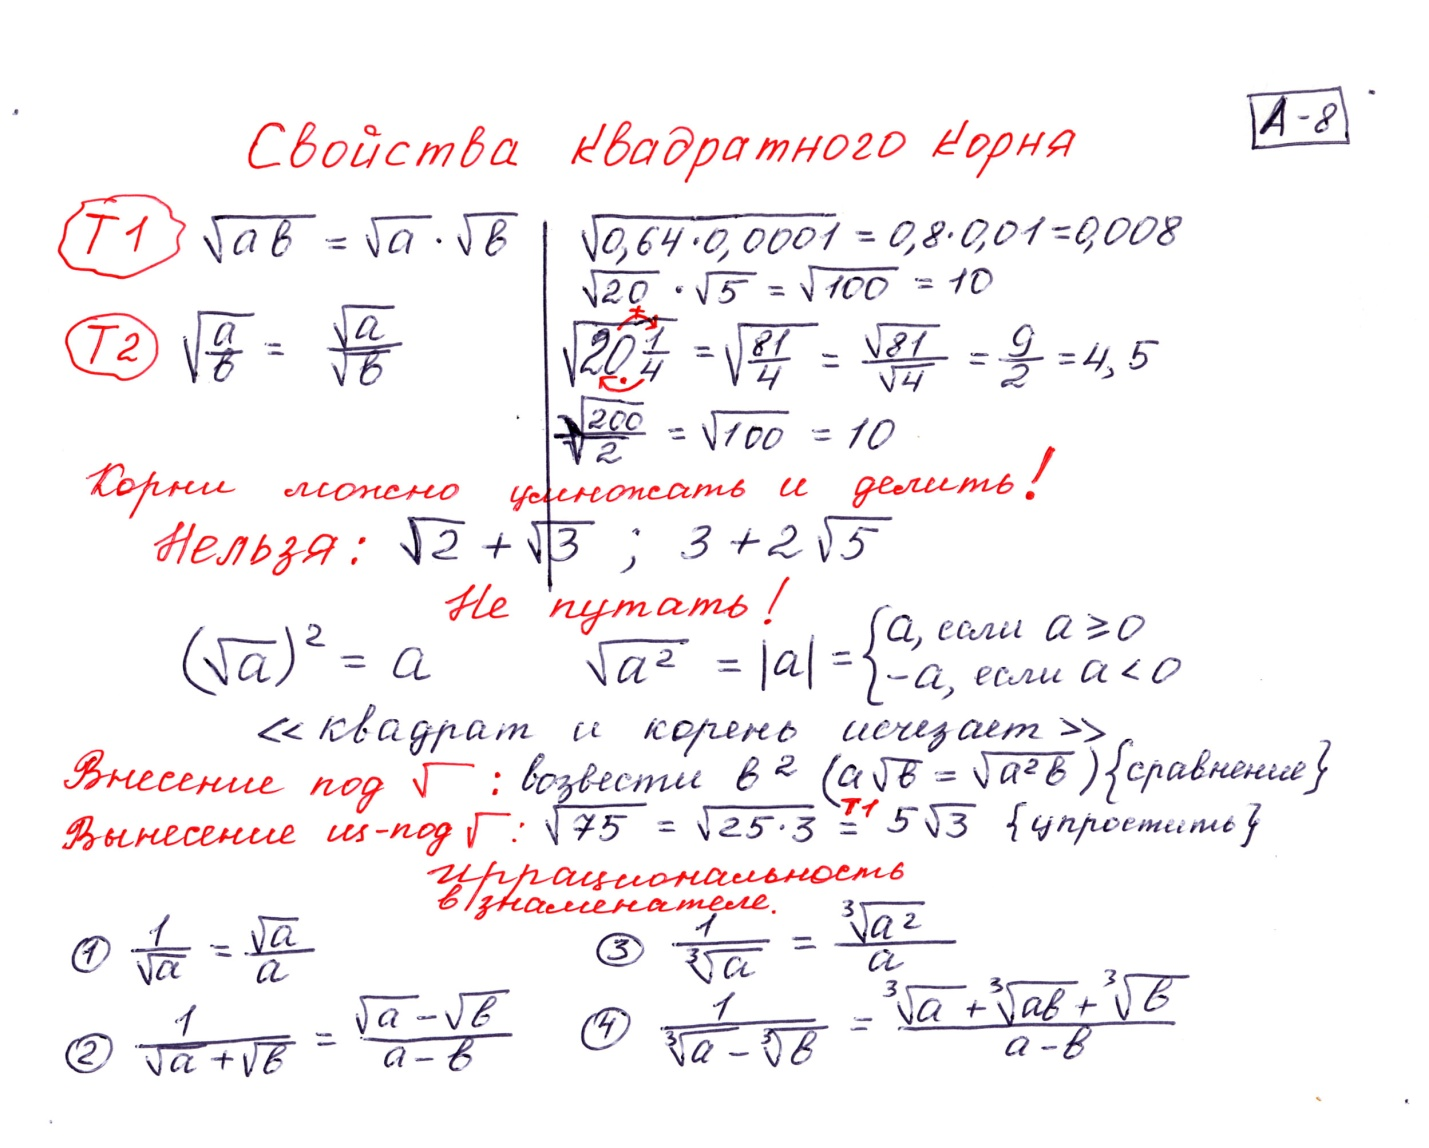 А-8
Свойства квадратного корня
Т1 √(ab) = √a · √b
√(0,64·0,0001) = 0,8·0,01=0,008
√20 · √5 = √100 = 10
Т2 √(a/b) = √a/√b
√(20 1/4) = √(81/4) = √81/√4 = 9/2 = 4,5
√200/√2 = √100 = 10
Корни можно умножать и делить!
Нельзя: √2 + √3 ; 3 + 2√5
Не путать!
(√a)² = a √(a²) = |a| = { a, если a ≥ 0
-a, если a < 0
<< квадрат и корень исчезает >>
Внесение под √ : возвести в ² (a√b = √(a²b)) {сравнение}
Вынесение из-под √ : √75 = √(25·3) =Т1 5√3 {упростить}
Иррациональность
в знаменателе.
① 1/√a = √a/a
③ 1/∛a = ∛(a²)/a
② 1/(√a + √b) = (√a − √b)/(a − b)
④ 1/(∛a − ∛b) = (∛a + ∛(ab) + ∛b)/(a − b)